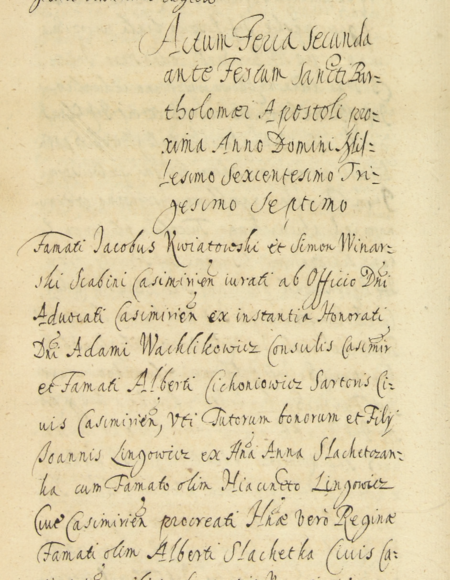 Actum Feria Secunda
ante Festum Sancti Bar-
tholomæi Apostoli pro-
xima Anno Domini Mil-
lesimo Sexcentesimo Tri-
gesimo Septimo
Famati Jacobus Kwiatowski et Simon Winar-
ski Scabini Casimirien̄ iurati ab Officio Dn̄i
Advocati Casimirien̄ ex instantia Honorati
Dn̄i Adami Wachlikowicz Consulis Casimir
et Famati Alberti Cichoniowicz Sartoris Ci-
uis Casimirien̄, Vti Tutorum bonorum et Filÿ
Joannis Lingowicz ex Hn̄a Anna Slachetczan-
ka cum Famato olim Hiacuncto Lingowicz
Ciue Casimirien̄ procreati Hn̄æ vero Reginæ
Famati olim Alberti Slachetka Ciuis Ca-